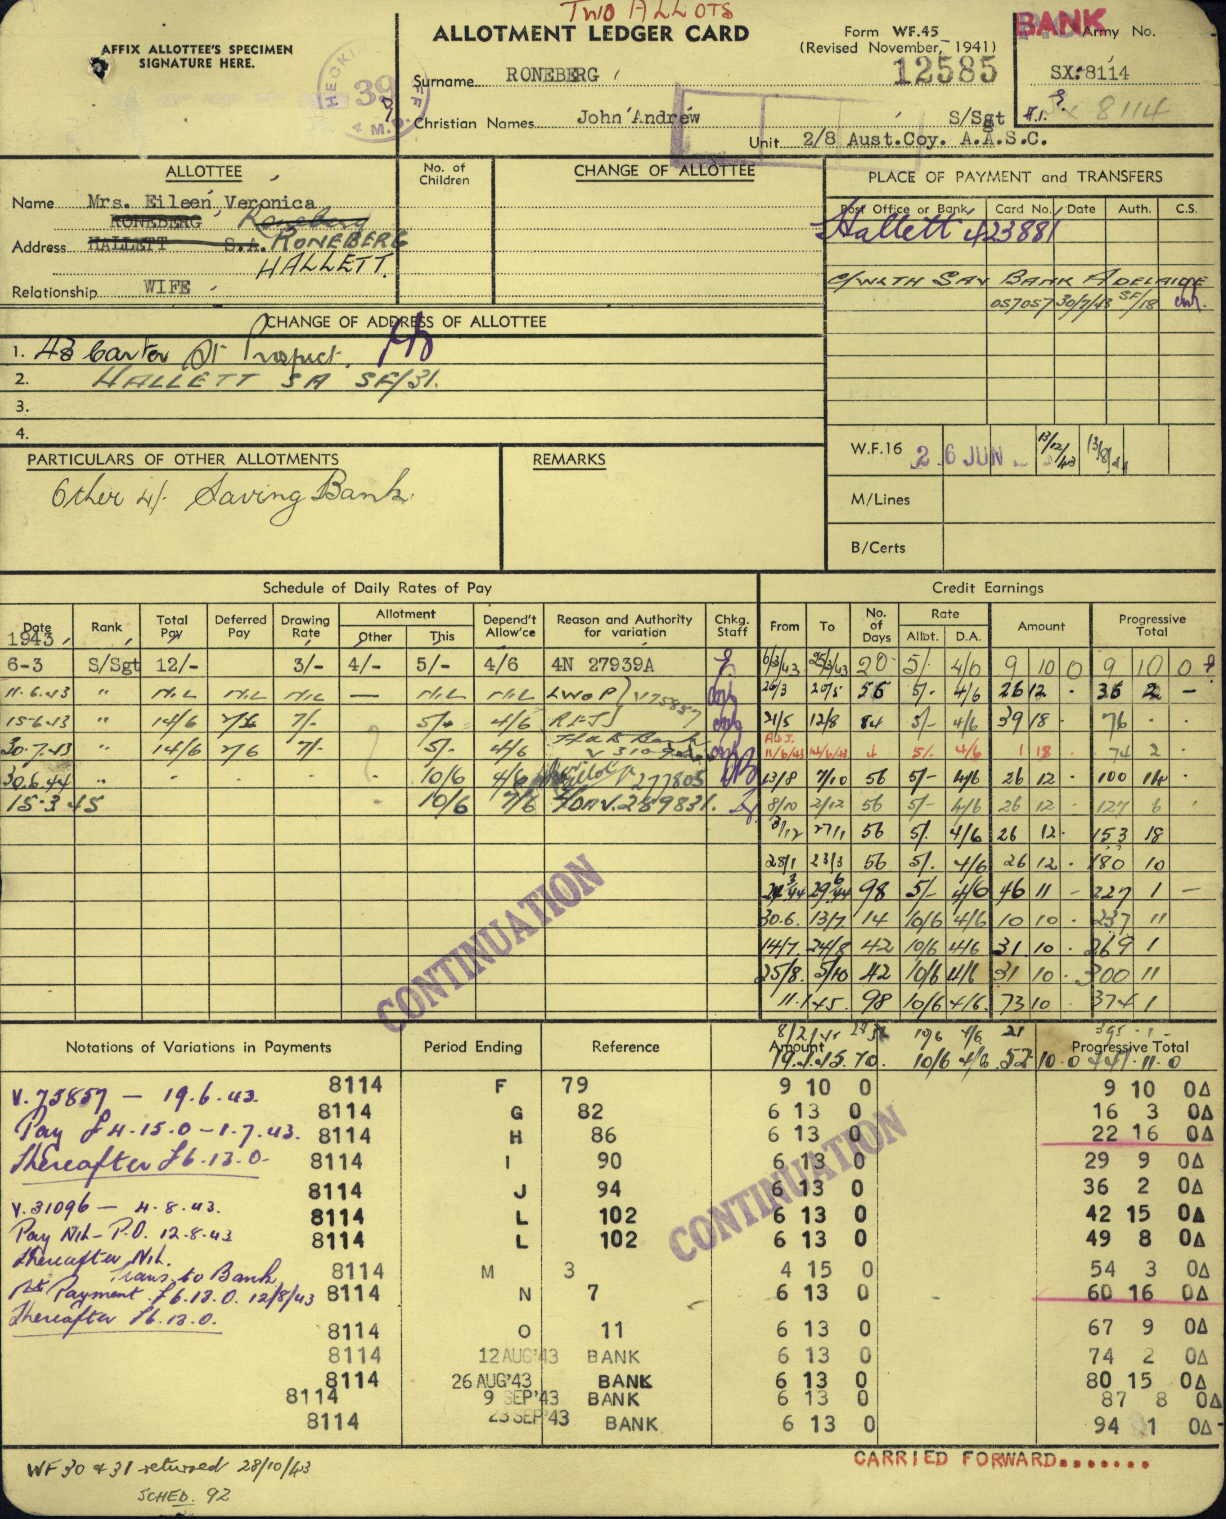 TWO ALLOTS
ALLOTMENT LEDGER CARD
Form WF.45
(Revised November, 1941)
12585
BANK
Army No.
SX:8114
8114
AFFIX ALLOTTEE'S SPECIMEN
SIGNATURE HERE.
39
Surname RONEBERG
Christian Names John Andrew
S/Sgt
Unit 2/8 Aust.Coy. A.A.S.C.
ALLOTTEE
Name Mrs. Eileen Veronica
RONEBERG Roneberg
Address HALLATT S.A. RONEBERG
HALLETT.
Relationship WIFE
No. of
Children
CHANGE OF ALLOTTEE
PLACE OF PAYMENT and TRANSFERS
Post Office or Bank Card No. Date Auth. C.S.
Hallett 423881
C/WLTH SAV BANK ADELAIDE
057057 30/7/43 SF/18
CHANGE OF ADDRESS OF ALLOTTEE
1. 43 Carter St Prospect.
2. HALLETT SA SF/31.
3.
4.
W.F.16 26 JUN 13/12/43 13/8/44
M/Lines
B/Certs
PARTICULARS OF OTHER ALLOTMENTS
Other 4/- Saving Bank
REMARKS
Schedule of Daily Rates of Pay
Date Rank Total Pay Deferred Pay Drawing Rate Allotment Other This Depend't Allow'ce Reason and Authority for variation Chkg. Staff
1943
6-3 S/Sgt 12/- 3/- 4/- 5/- 4/6 4N 27939A
11.6.43 " NIL NIL NIL — NIL NIL LWOP V75857
15-6-43 " 14/6 2/6 7/- 5/- 4/6
30.7.43 " 14/6 2/6 7/- 5/- 4/6 Bank V 31096
30.6.44 " 10/6 4/6 277805
15.3.45 10/6 7/6 V.289831.
Credit Earnings
From To No. of Days Rate Allbt. D.A. Amount Progressive Total
6/3/43 25/3/43 20 5/- 4/6 9 10 0 9 10 0
26/3 20/5 56 5/- 4/6 26 12 - 36 2 -
21/5 12/8 84 5/- 4/6 39 18 - 76 - -
ADJ.
11/6/43 14/6/43 4 5/- 4/6 1 18 74 2 -
13/8 7/10 56 5/- 4/6 26 12 - 100 14 -
8/10 2/12 56 5/- 4/6 26 12 - 127 6
3/12 27/1 56 5/- 4/6 26 12 - 153 18
28/1 23/3 56 5/- 4/6 26 12 - 180 10
24/3/44 29/6/44 98 5/- 4/6 46 11 - 227 1 —
30.6. 13/7 14 10/6 4/6 10 10 - 237 11
14/7. 24/8 42 10/6 4/6 31 10 - 269 1
25/8. 5/10 42 10/6 4/6 31 10 - 300 11
11.1.45. 98 10/6 4/6. 73 10 374 1
8/2/45 28 10/6 4/6 21 395 - 1 -
19.4.45. 70. 10/6 4/6 52 10-0 447-11-0
CONTINUATION
Notations of Variations in Payments Period Ending Reference Amount Progressive Total
V.75857 — 19.6.43.
Pay £4.15.0 — 1.7.43.
Thereafter £6.13.0.
V.31096 — 4.8.43.
Pay Nil — P.D. 12.8.43
Thereafter Nil.
Trans to Bank
1st Payment £6.13.0. 12/8/43
Thereafter £6.13.0.
8114 F 79 9 10 0 9 10 0Δ
8114 G 82 6 13 0 16 3 0Δ
8114 H 86 6 13 0 22 16 0Δ
8114 I 90 6 13 0 29 9 0Δ
8114 J 94 6 13 0 36 2 0Δ
8114 L 102 6 13 0 42 15 0Δ
8114 L 102 6 13 0 49 8 0Δ
8114 M 3 4 15 0 54 3 0Δ
8114 N 7 6 13 0 60 16 0Δ
8114 O 11 6 13 0 67 9 0Δ
8114 12 AUG'43 BANK 6 13 0 74 2 0Δ
8114 26 AUG'43 BANK 6 13 0 80 15 0Δ
8114 9 SEP'43 BANK 6 13 0 87 8 0Δ
8114 23 SEP'43 BANK 6 13 0 94 1 0Δ
CONTINUATION
WF 30 & 31 returned 28/10/43
SCHED. 92
CARRIED FORWARD.......